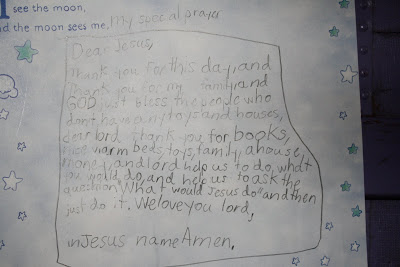 see the moon,
nd the moon sees me, my special prayer
Dear Jesus,
thank you for this day, and
thank you for my family, and
GOD just bless the people who
don't have any toys and houses,
dear lord thank you for books,
warm beds, toys, family, a house,
money, and lord help us to do, what
you would do, and help us to ask the
question "What would Jesus do" and then
just do it. We love you lord,
in Jesus name Amen.